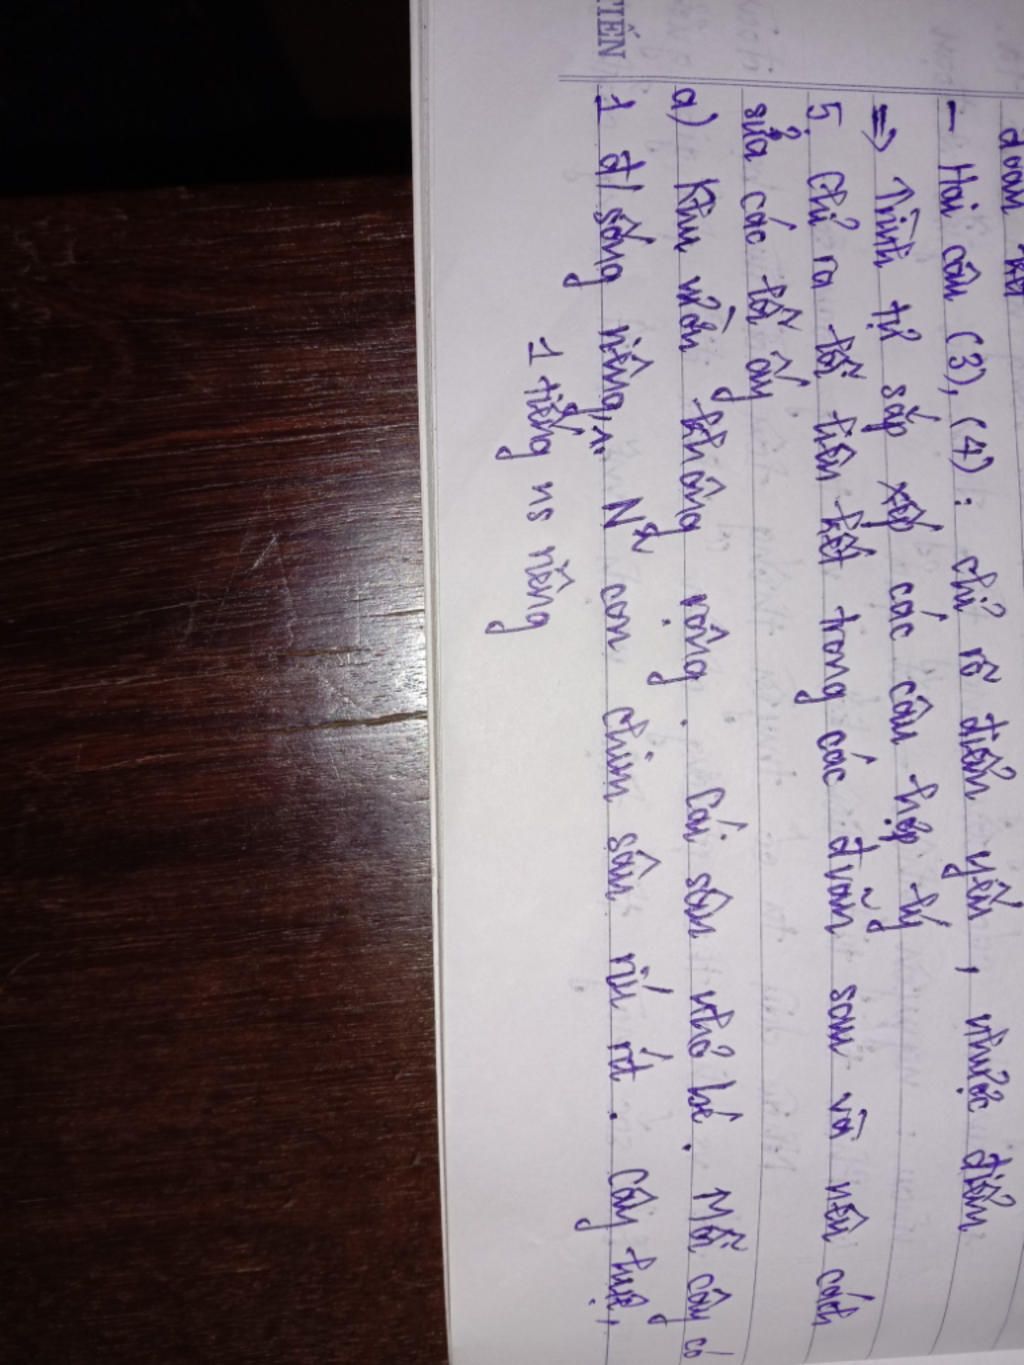 đoạn
- Hai câu (3), (4): chỉ rõ điểm yếu, nhược điểm.
=> Trình tự sắp xếp các câu hợp lý
5. Chỉ ra lỗi liên kết trong các đvăn sau và nêu cách
sửa các lỗi ấy
a) Khu vườn không rộng. Cái sân nhỏ bé. Mỗi cây có
1 đ/sống riêng, N~ con chim sâu ríu rít. Cây huệ,
1 tiếng ns riêng
TIẾN